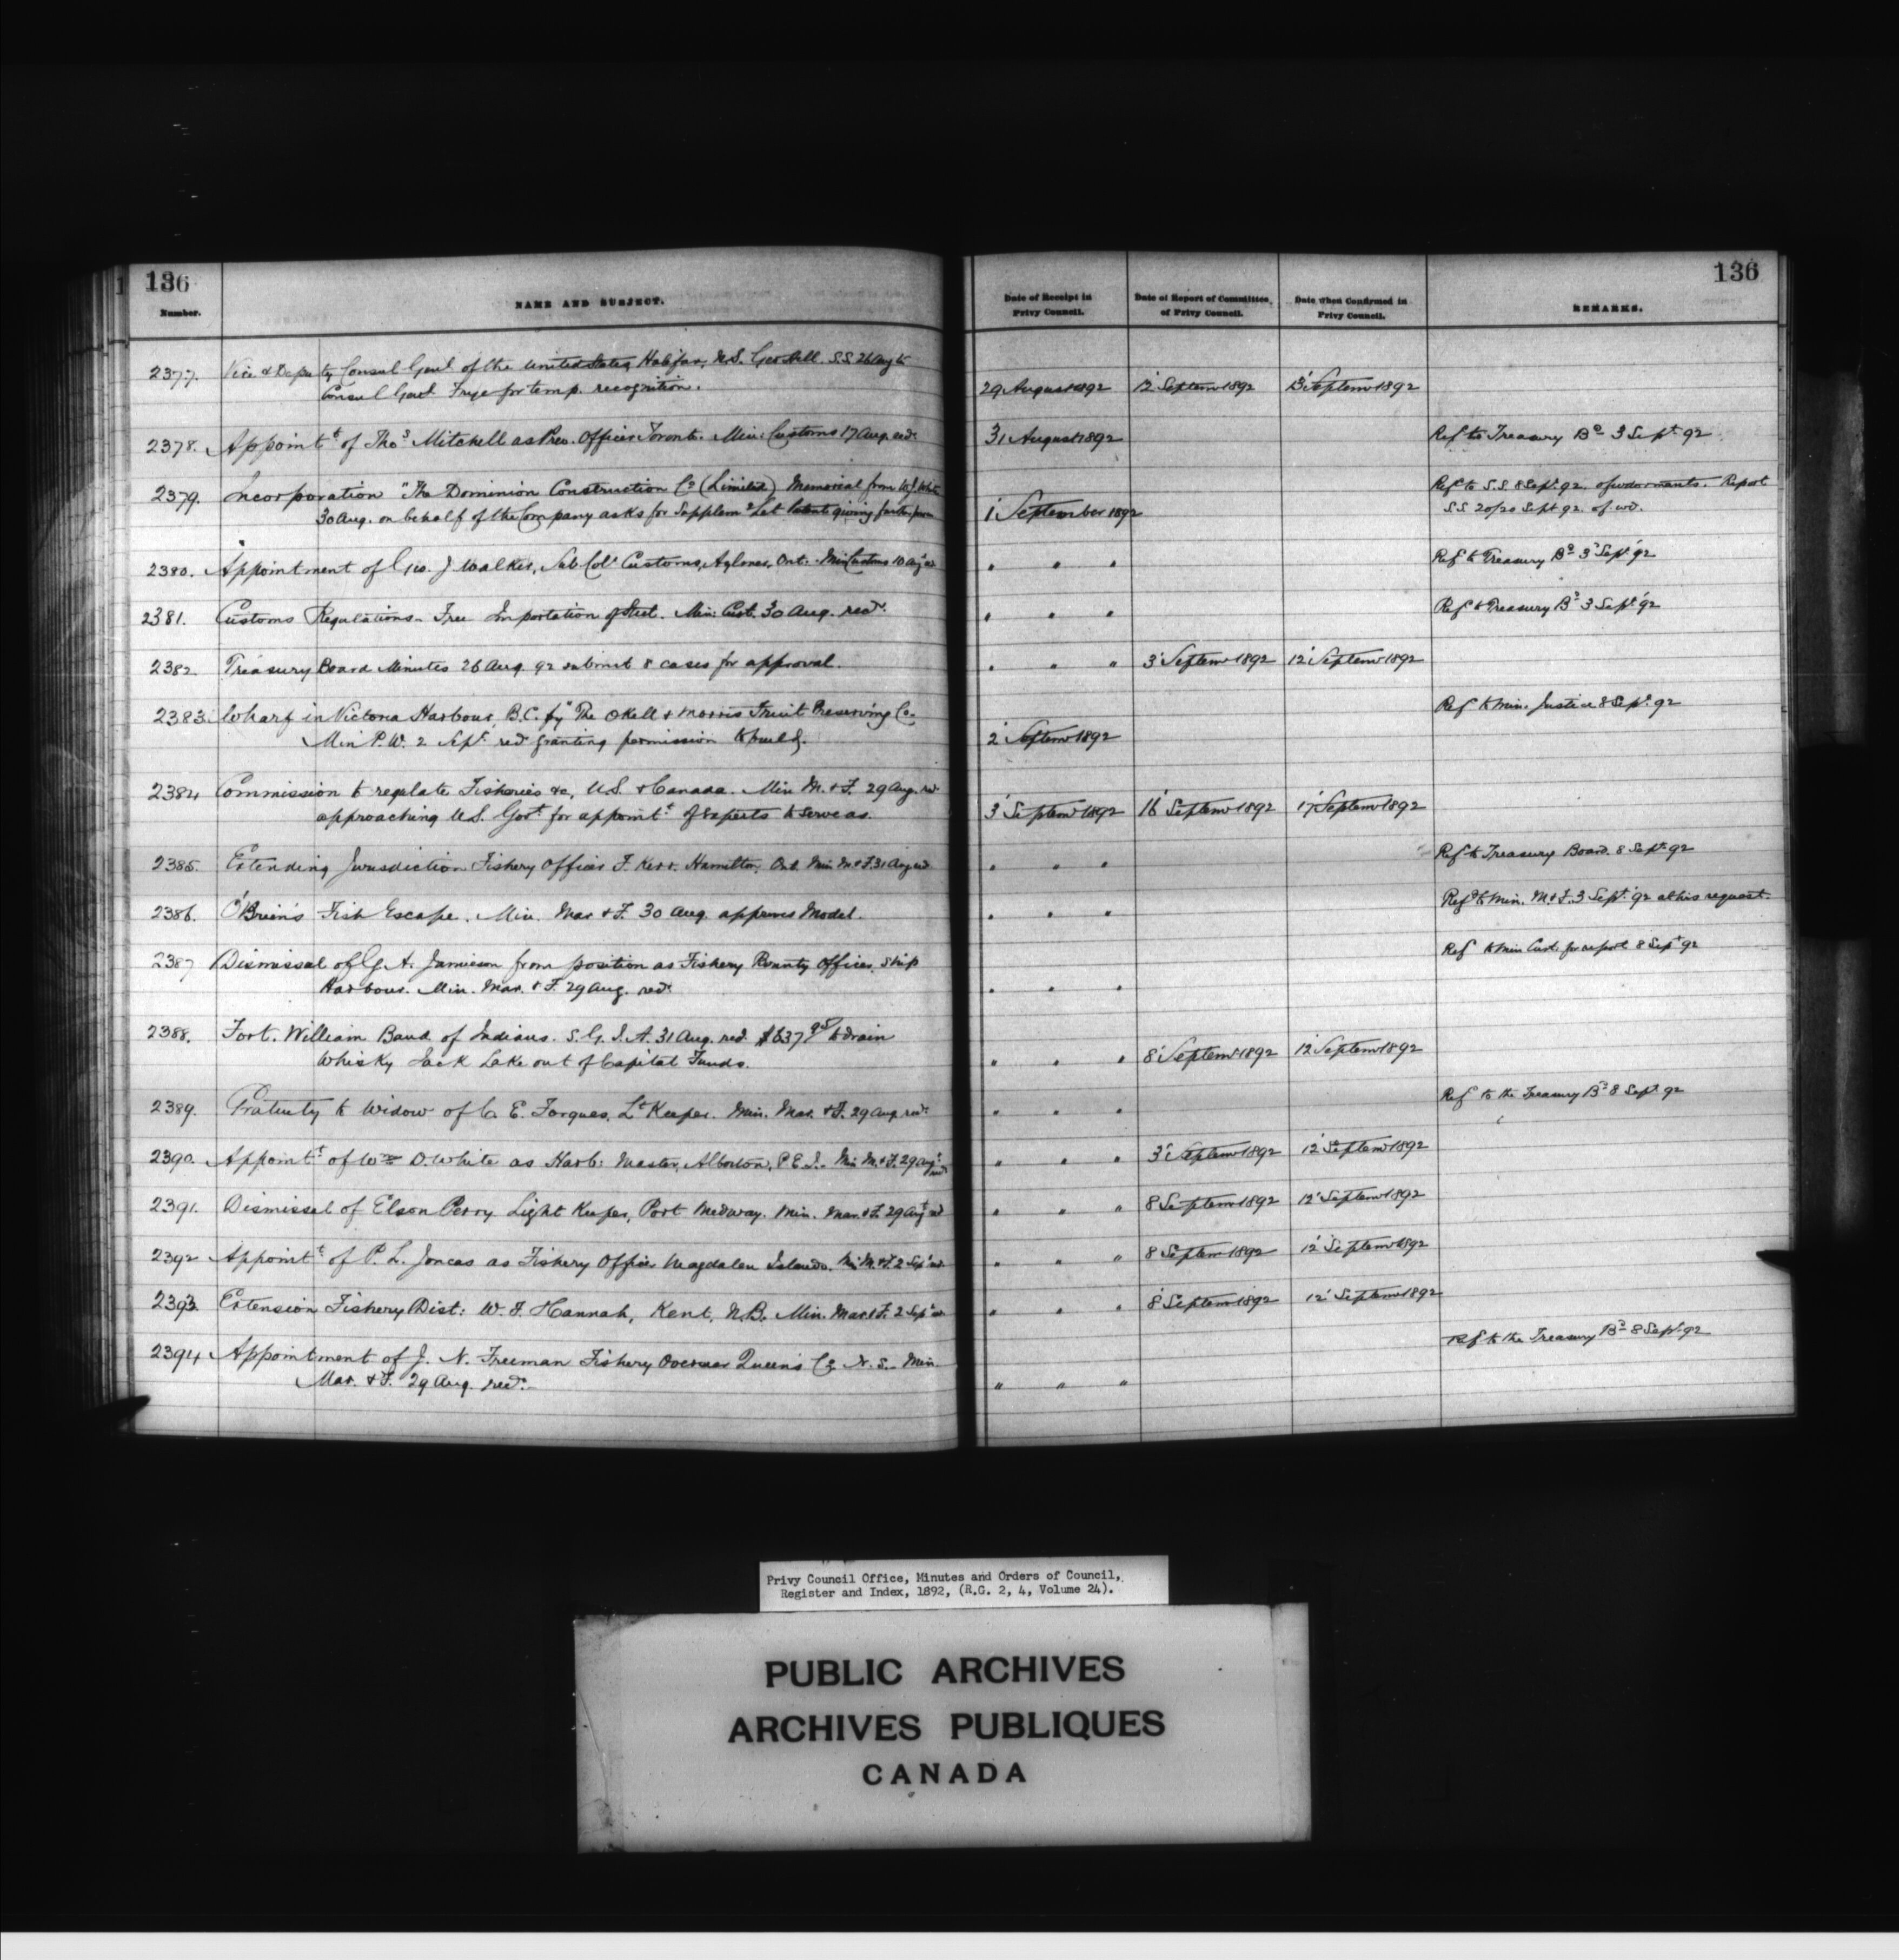 136
136
Number.
NAME AND SUBJECT.
Date of Receipt in
Privy Council.
Date of Report of Committee
of Privy Council.
Date when Confirmed in
Privy Council.
REMARKS.
2377. Vice & Deputy Consul Genl of the United States Halifax, N.S. Geo Hill. S.S. 26 Aug to
Consul Genl Frye for temp. recognition. 29 August 1892 12 Septemr 1892 13 Septemr 1892
2378. Appointt of Thos Mitchell as Prev. Officer Toronto. Min: Customs 17 Aug. recd. 31 August 1892 Ref to Treasury Bd 3 Sept 92
2379. Incorporation "The Dominion Construction Co (Limited) Memorial from W. J. White Ref to S.S. 8 Sept 92. Report
30 Aug. on behalf of the Company asks for Supplem. Let. Patent giving furth. powr 1 September 1892 S.S. 20/20 Sept 92.
2380. Appointment of Geo. J Walker, Sub Colr Customs, Aylmer, Ont. Min Customs 10 Aug " " " Ref to Treasury Bd 3 Sept 92
2381. Customs Regulations - Free Importation of Steel. Min: Cust. 30 Aug. recd. " " " Ref to Treasury Bd 3 Sept 92
2382. Treasury Board Minutes 26 Aug 92 submit 8 cases for approval. " " " 3 Septemr 1892 12 Septemr 1892
2383. Wharf in Victoria Harbour, B.C. by "The Okell & Morris Fruit Preserving Co. Ref to Min. Justice 8 Sept. 92
Min P.W. 2 Sept recd granting permission to build. 2 Septemr 1892
2384 Commission to regulate Fisheries &c, U.S. & Canada. Min M. & F. 29 Aug. recd
approaching U.S. Govt for appointt of Experts to serve as. 3 Septemr 1892 16 Septemr 1892 17 Septemr 1892
2385. Extending Jurisdiction Fishery Officer F. Kerr. Hamilton, Ont. Min M & F. 31 Aug recd " " " Ref to Treasury Board 8 Sept 92
2386. O'Brien's Fish Escape. Min. Mar & F. 30 Aug. approves Model. " " " Ref to Min. M & F. 3 Sept 92 at his request.
2387 Dismissal of G. A. Jamieson from position as Fishery Bounty Officer, Ship Ref to Min Cust. for report 8 Sept 92
Harbour. Min. Mar. & F. 29 Aug. recd. " " "
2388. Fort. William Band of Indians. S. G. I. A. 31 Aug. recd $637 to drain
Whisky Jack Lake out of Capital Funds. " " " 8 Septemr 1892 12 Septemr 1892
2389. Gratuity to Widow of C. E. Forgues, Lt Keeper. Min. Mar. & F. 29 Aug recd. " " " Ref to the Treasury Bd 8 Sept 92
2390. Appointt of Wm D. White as Harb: Master, Alberton, P.E.I. Min M. & F. 29 Aug. recd " " " 3 Septemr 1892 12 Septemr 1892
2391. Dismissal of Elson Perry Light Keeper, Port Medway. Min. Mar. & F. 29 Aug recd " " " 8 Septemr 1892 12 Septemr 1892
2392 Appointt of P. L. Joncas as Fishery Officer Magdalen Islands. Min M. & F. 2 Sept recd " " " 8 Septemr 1892 12 Septemr 1892
2393 Extension Fishery Dist: W. F. Hannah, Kent, N.B. Min. Mar. & F. 2 Sept recd " " " 8 Septemr 1892 12 Septemr 1892
2394 Appointment of J. N. Freeman Fishery Overseer Queen's Co N.S. Min. Ref to the Treasury Bd 8 Sept. 92
Mar. & F. 29 Aug. recd. " " "
Privy Council Office, Minutes and Orders of Council,
Register and Index, 1892, (R.G. 2, 4, Volume 24).
PUBLIC ARCHIVES
ARCHIVES PUBLIQUES
CANADA